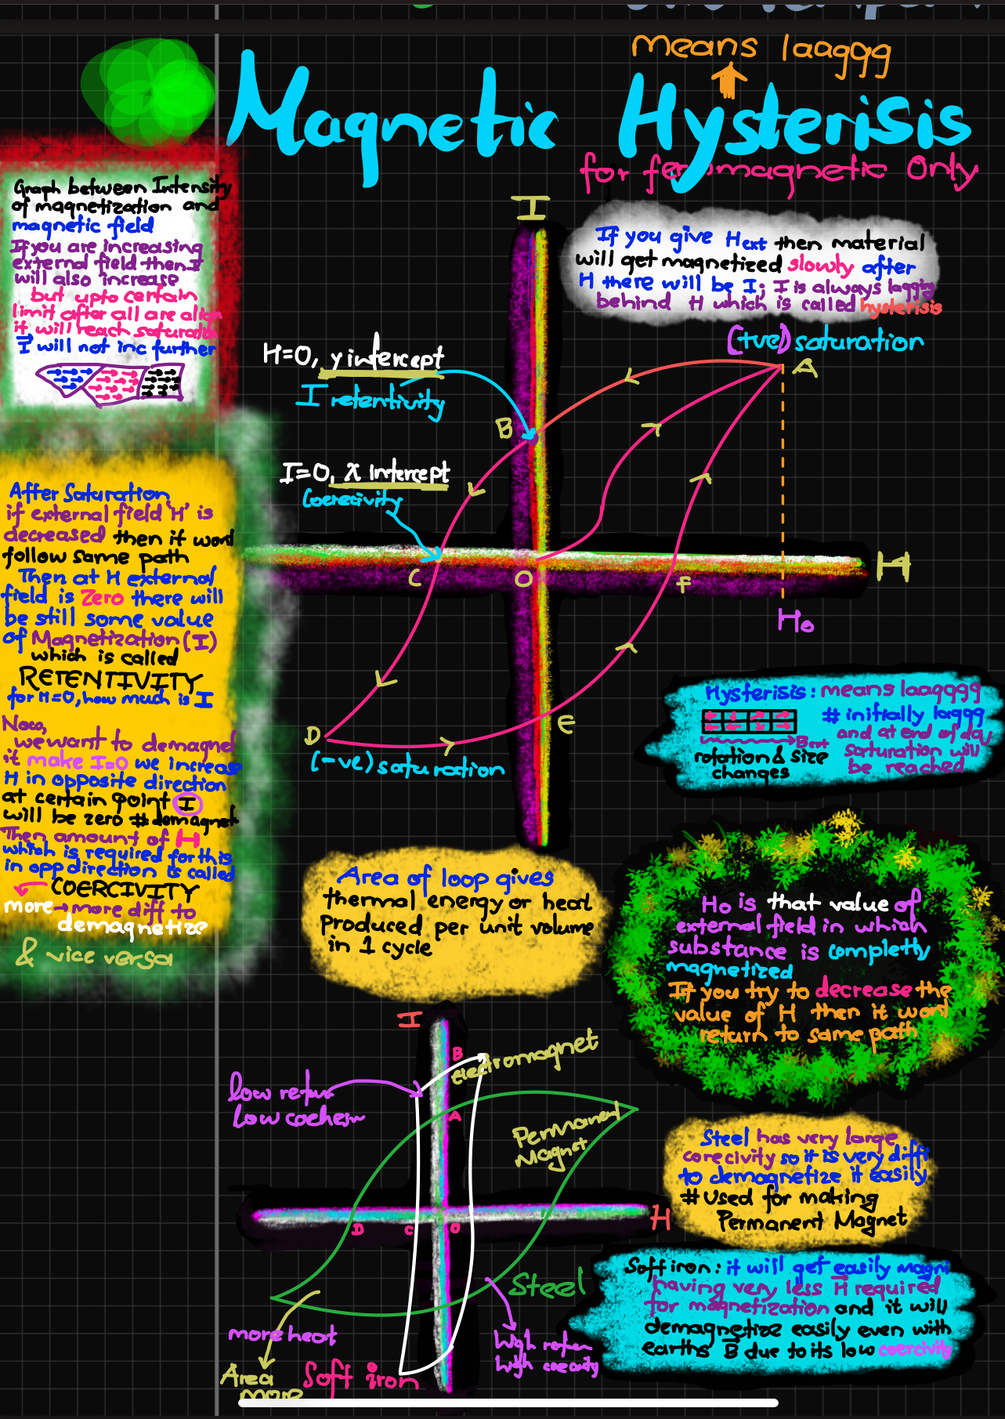 means laaggg
Magnetic Hysterisis
for ferromagnetic Only
Graph between Intensity
of magnetization and
magnetic field
If you are increasing
external field then I
will also increase
but upto certain
limit after all are
it will reach
I will not inc further
I
If you give Hext then material
will get magnetized slowly after
H there will be I; I is always
behind H which is called hysterisis
(+ve) saturation
A
H=0, y intercept
I retentivity
B
I=0, x intercept
Coerecivity
C
O
F
H
Ho
D
E
(-ve) saturation
After Saturation
if external field 'H' is
decreased then it wont
follow same path
Then at H external
field is Zero there will
be still some value
of Magnetization (I)
which is called
RETENTIVITY
for H=0, how much is I
Now,
we want to demagnet
it make I=0 we increase
H in opposite direction
at certain point I
will be zero # demagnet
Then amount of H
which is required for this
in opp direction is called
COERCIVITY
more → more diff to
demagnetize
& vice versa
Hysterisis: means laaggggg
# initially laggg
and at end of day
saturation will
be reached
rotation & size
changes
Area of loop gives
thermal energy or heat
produced per unit volume
in 1 cycle
Ho is that value of
external field in which
substance is completly
magnetized
If you try to decrease the
value of H then it wont
return to same path
I
B
electromagnet
low
low
A
Permanent
Magnet
D
C
O
H
Steel
more heat
Area
more
Soft iron
High
high
Steel has very large
corecivity so it is very diff
to demagnetize it easily
# Used for making
Permanent Magnet
Soft iron: it will get easily magn
having very less H required
for magnetization and it will
demagnetize easily even with
earths B due to its low coercivity